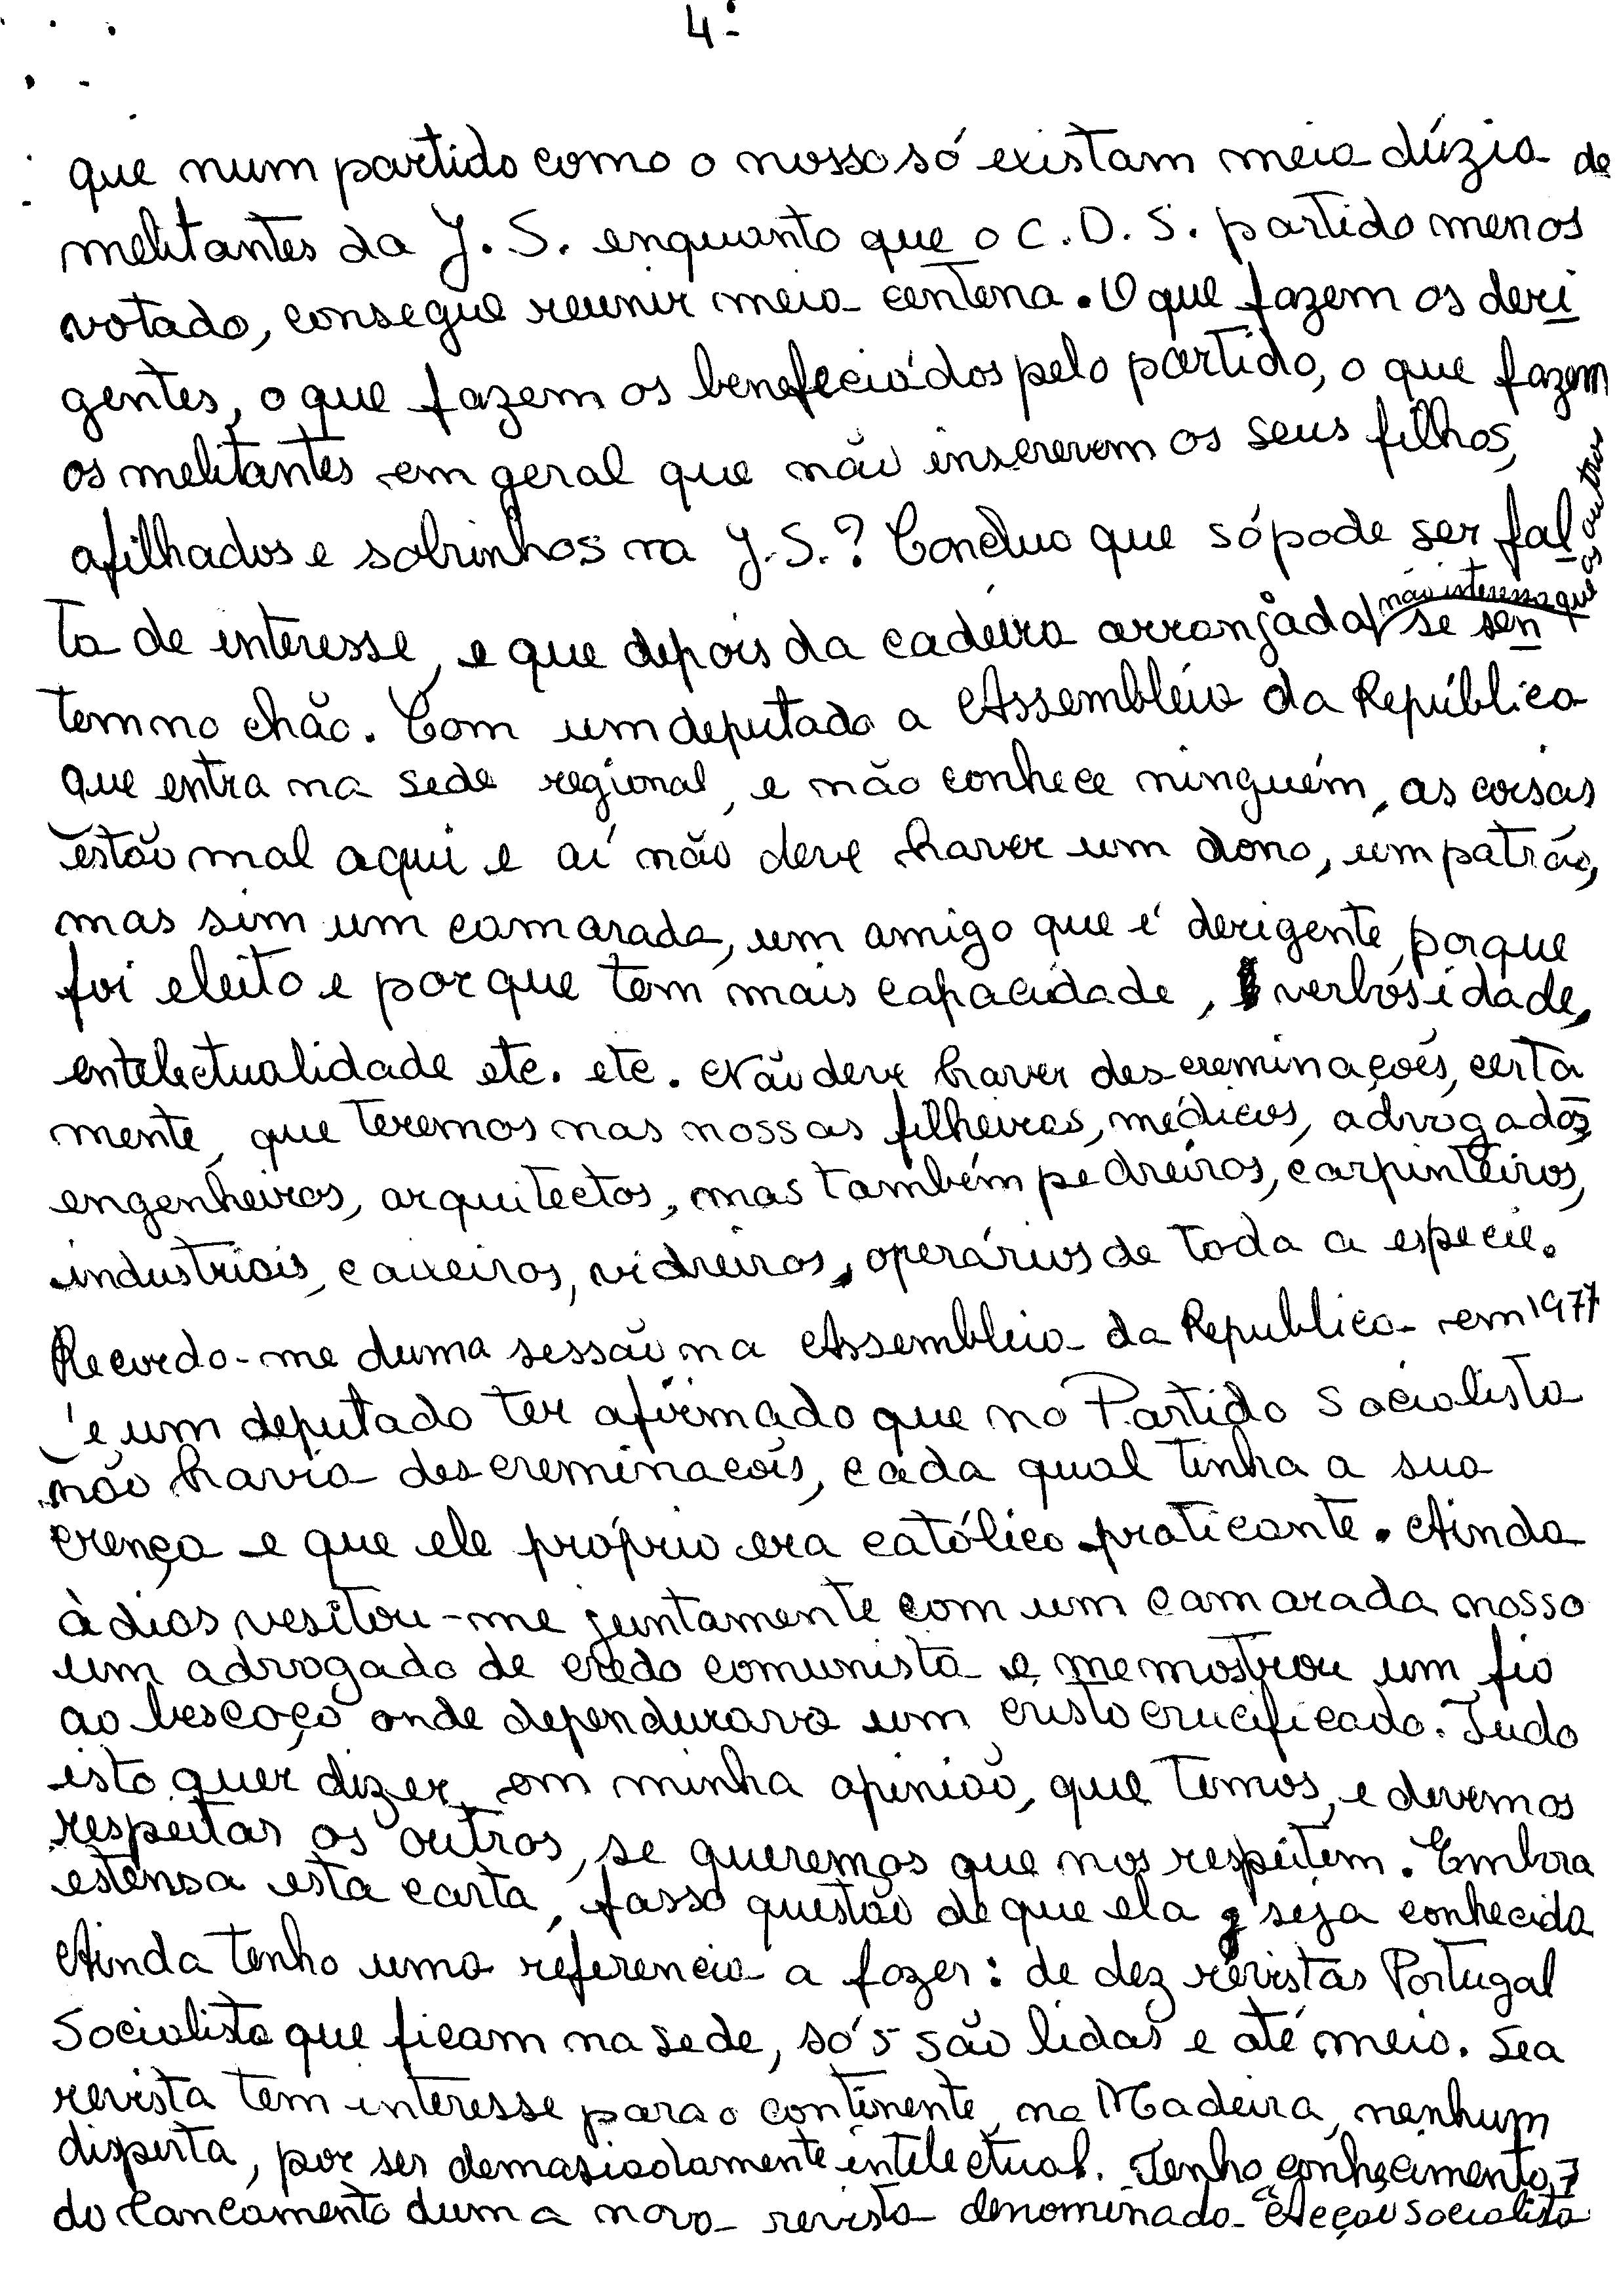 4-
que num partido como o nosso só existam meia dúzia de
melitantes da J.S. enquanto que o C.D.S. partido menos
votado, consegue reunir meia centena. O que fazem os deri
gentes, o que fazem os benefeciádos pelo partido, o que fazem
os melitantes em geral que não inscrevem os seus filhos,
afilhados e sobrinhos na J.S.? Concluo que só pode ser fal
ta de interesse, e que depois da cadeira arranjada não interessa que os outros se sen
tem no chão. Com um deputado a Assembleia da República
que entra na sede regional, e não conhece ninguém, as coisas
estão mal aqui e aí não deve haver um dono, um patrão,
mas sim um camarada, um amigo que é derigente, porque
foi eleito e porque tem mais capacidade, verbósidade,
entelectualidade etc. etc. Não deve haver descreminações, certa
mente, que teremos nas nossas filheiras, médicos, advogados,
engenheiros, arquitectos, mas também pedreiros, carpinteiros,
industriais, caixeiros, vidreiros, operários de toda a especie.
Recordo-me duma sessão na Assembleia da Republica em 1977
é um deputado ter afirmado que no Partido Socialista
não havia descreminacois, cada qual tinha a sua
crença e que ele próprio era católico praticante. Ainda
à dias vesitou-me juntamente com um camarada nosso
um advogado de credo comunista e me mostrou um fio
ao bescoço onde dependurava um cristo crucificado. Tudo
isto quer dizer, em minha opinião, que temos, e devemos
respeitar os outros, se queremos que nos respeitem. Embora
estensa esta carta, fasso questão de que ela seja conhecida
Ainda tenho uma referencia a fazer: de dez revistas Portugal
Socialista que ficam na sede, só 5 são lidas e até meio. Se a
revista tem interesse para o continente, na Madeira, nenhum
disperta, por ser demasiadamente intelectual. Tenho conhecimento,
do lancamento duma nova revista denominada "Acção Socialista